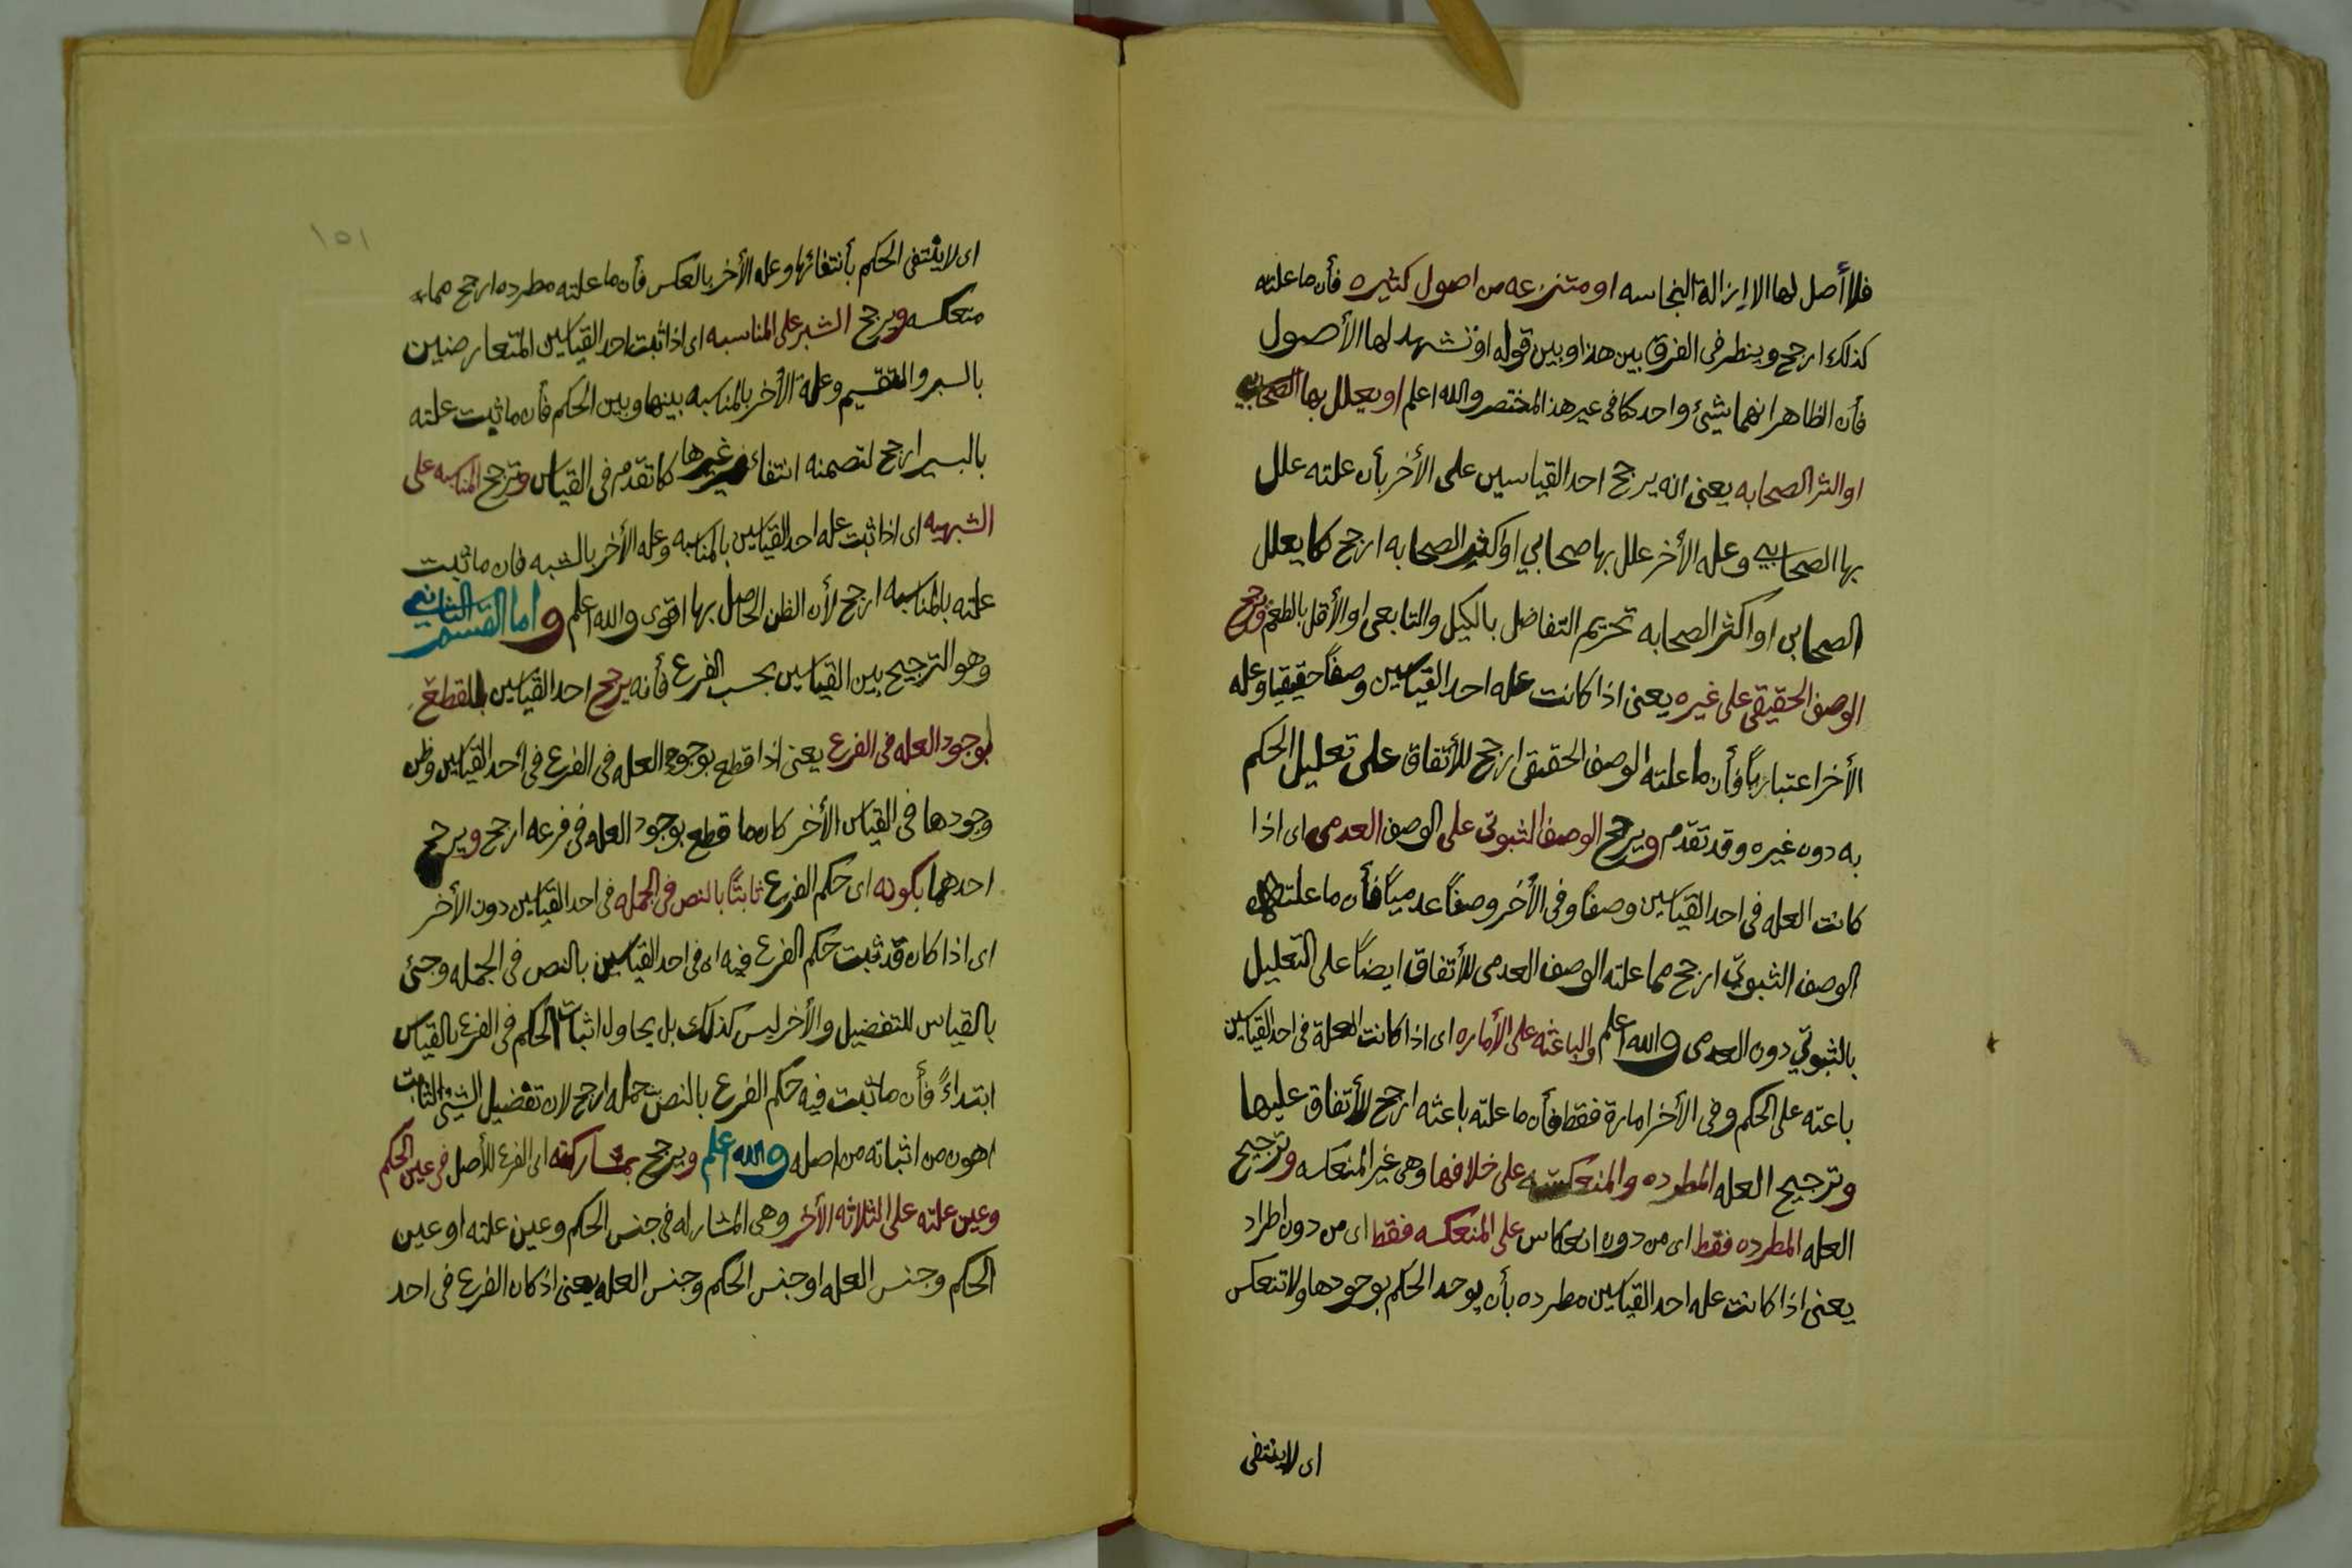 فلا أصل لها الا ازالة النجاسه او متنزعه من اصول كثيره فأن ما علته
كذلك ارجح وينظر في الفرق بين هذا وبين قوله او تشهد لها الأصول
فأن الظاهر انهما شيئ واحد كما في غير هذا المختصر والله اعلم او يعلل بها الصحابي
او اكثر الصحابه يعنى انه يرجح احد القياسين على الأخر بأن علته علل
بها الصحابي وعله الأخر علل بها صحابي او اكثر الصحابه ارجح كما يعلل
الصحابى او اكثر الصحابه تحريم التفاضل بالكيل والتابعى او الأقل بالطعم ويرجح
الوصف الحقيقى على غيره يعنى اذا كانت عله احد القياسين وصفاً حقيقيا وعله
الأخر اعتبارياً فأن ما علته الوصف الحقيقى ارجح للأتفاق على تعليل الحكم
به دون غيره وقد تقدم ويرجح الوصف الثبوتي على الوصف العدمى اى اذا
كانت العله في احد القياسين وصفاً وفى الأخر وصفاً عدمياً فأن ما علته
الوصف الثبوتي ارجح مما علته الوصف العدمى للأتفاق ايضاً على التعليل
بالثبوتي دون العدمى والله اعلم والباعثه على الأماره اى اذا كانت العلة فى احد القياسين
باعثه على الحكم وفى الأخر امارة فقط فأن ما علته باعثه ارجح للأتفاق عليها
وترجيح العله المطرده والمنعكسه على خلافها وهى غير المنعكسه وترجيح
العله المطرده فقط اى من دون انعكاس على المنعكسه فقط اى من دون اطراد
يعنى اذا كانت عله احد القياسين مطرده بأن يوجد الحكم بوجودها ولا تنعكس
اى لا ينتفى
١٥١
اى لا ينتفى الحكم بأنتفائها وعله الأخر بالعكس فأن ما علته مطرده ارجح مما علته
منعكسه ويرجح السبر على المناسبه اى اذا ثبت احد القياسين المتعارضين
بالسبر والتقسيم وعلة الأخر بالمناسبه بينها وبين الحكم فأن ما ثبت علته
بالسبر ارجح لتضمنه انتفاء غيرها كما تقدم فى القياس وترجح المناسبه على
الشبهيه اى اذا ثبت عله احد القياسين بالمناسبه وعله الأخر بالشبه فان ما ثبت
علته بالمناسبه ارجح لأن الظن الحاصل بها اقوى والله اعلم واما القسم الثاني
وهو الترجيح بين القياسين بحسب الفرع فأنه يرجح احد القياسين بالقطع
بوجود العله فى الفرع يعنى اذا قطع بوجود العله فى الفرع فى احد القياسين وظن
وجودها فى القياس الأخر كان ما قطع بوجود العله فى فرعه ارجح ويرجح
احدهما بكونه اى حكم الفرع ثابتاً بالنص فى الجمله فى احد القياسين دون الأخر
اى اذا كان قد ثبت حكم الفرع فيه اى فى احد القياسين بالنص فى الجمله وجئ
بالقياس للتفضيل والأخر ليس كذلك بل يحاول اثبات الحكم فى الفرع بالقياس
ابتداءً فأن ما ثبت فيه حكم الفرع بالنص جمله ارجح لان تفضيل الشئ الثابت
اهون من اثباته من اصله والله اعلم ويرجح بمشاركته اى الفرع للأصل فى عين الحكم
وعين علته على الثلاثه الأخر وهى المشاركه فى جنس الحكم وعين علته او عين
الحكم وجنس العله او جنس الحكم وجنس العله يعنى اذ كان الفرع فى احد